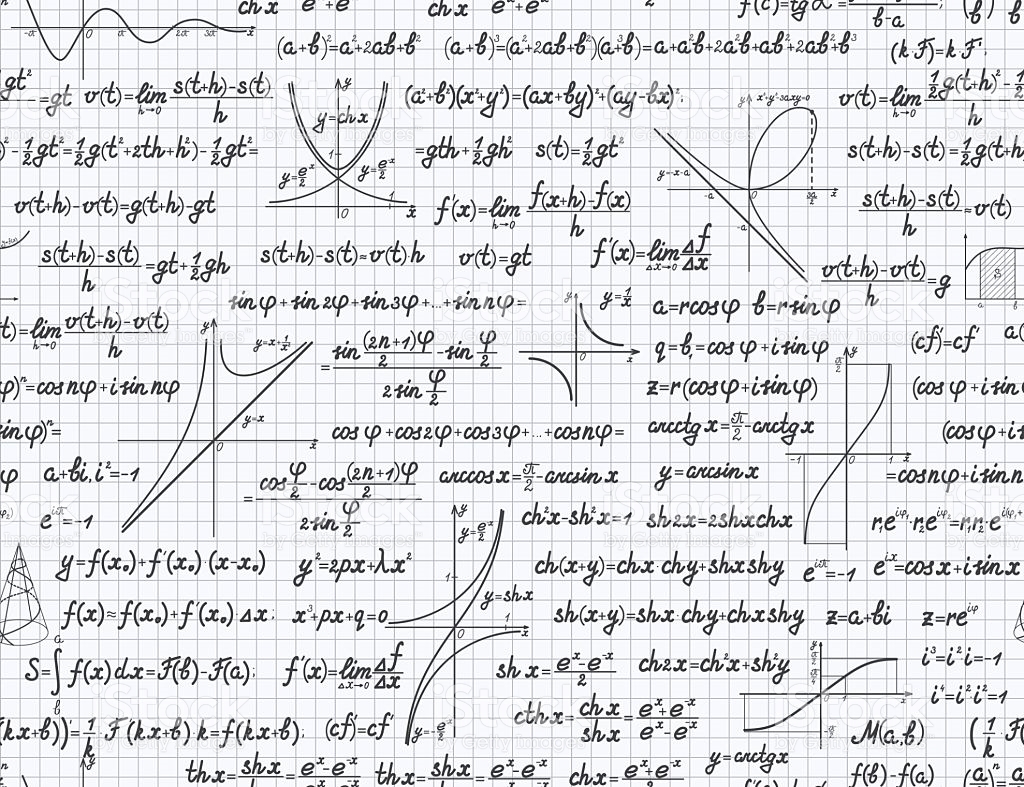 ch x
(a+b)²=a²+2ab+b²
(a+b)³=(a²+2ab+b²)(a+b)=a³+a²b+2a²b+2ab²+ab²+b³
(k·F)'=k·F';
gt²
=gt
v(t)=lim h→0 s(t+h)-s(t) / h
y=ch x
y=eˣ/2
y=e⁻ˣ/2
(a²+b²)(x²+y²)=(ax+by)²+(ay-bx)²;
y=-x-a
v(t)=lim h→0 ½g(t+h)²-½ / h
-½gt²=½g(t²+2th+h²)-½gt²=
=gth+½gh²
s(t)=½gt²
s(t+h)-s(t)=½g(t+h
v(t+h)-v(t)=g(t+h)-gt
f'(x)=lim h→0 f(x+h)-f(x) / h
s(t+h)-s(t) / h ≈v(t)
s(t+h)-s(t) / h =gt+½gh
s(t+h)-s(t)≈v(t)·h
v(t)=gt
f'(x)=lim Δx→0 Δf/Δx
v(t+h)-v(t) / h =g
sinφ+sin2φ+sin3φ+...+sin nφ=
y=1/x
a=rcosφ b=rsinφ
t)=lim h→0 v(t+h)-v(t) / h
y=x+1/x²
y=x
= sin (2n+1)φ/2 -sin φ/2 / 2sin φ/2
q=b,=cosφ+isinφ
(cf')=cf'
φ)ⁿ=cos nφ+i sin nφ
z=r(cosφ+isinφ)
(cosφ+isin
inφ)ⁿ=
cosφ+cos2φ+cos3φ+...+cosnφ=
arcctg x=π/2-arctg x
(cosφ+is
a+bi,i²=-1
= cos φ/2 -cos (2n+1)φ/2 / 2sin φ/2
arccos x=π/2-arcsin x
y=arcsin x
=cosnφ+isinn
e^iπ=-1
y=eˣ/2
ch²x-sh²x=1
sh2x=2shxchx
r₁e^iφ₁·r₂e^iφ₂=r₁r₂·e^i(φ₁+
y=f(x₀)+f'(x₀)·(x-x₀)
y²=2px+λx²
ch(x+y)=chx·chy+shxshy
e^iπ=-1
e^ix=cosx+isinx
f(x)≈f(x₀)+f'(x₀)·Δx;
x³+px+q=0
y=shx
sh(x+y)=shx·chy+chxshy
z=a+bi
z=re^iφ
S=∫ₐᵇ f(x)dx=F(b)-F(a);
f'(x)=lim Δx→0 Δf/Δx
shx= eˣ-e⁻ˣ / 2
ch2x=ch²x+sh²y
i³=i²·i=-1
i⁴=i²·i²=1
(kx+b))'=1/k·F'(kx+b)·k=f(kx+b);
(cf')=cf'
y=-e⁻ˣ/2
cthx= chx/shx = eˣ+e⁻ˣ / eˣ-e⁻ˣ
M(a,b)
y=arctgx
thx= shx = eˣ-e⁻ˣ
thx= shx = eˣ-e⁻ˣ
chx= eˣ+e⁻ˣ
f(b)-f(a)
iStock
by Getty Images